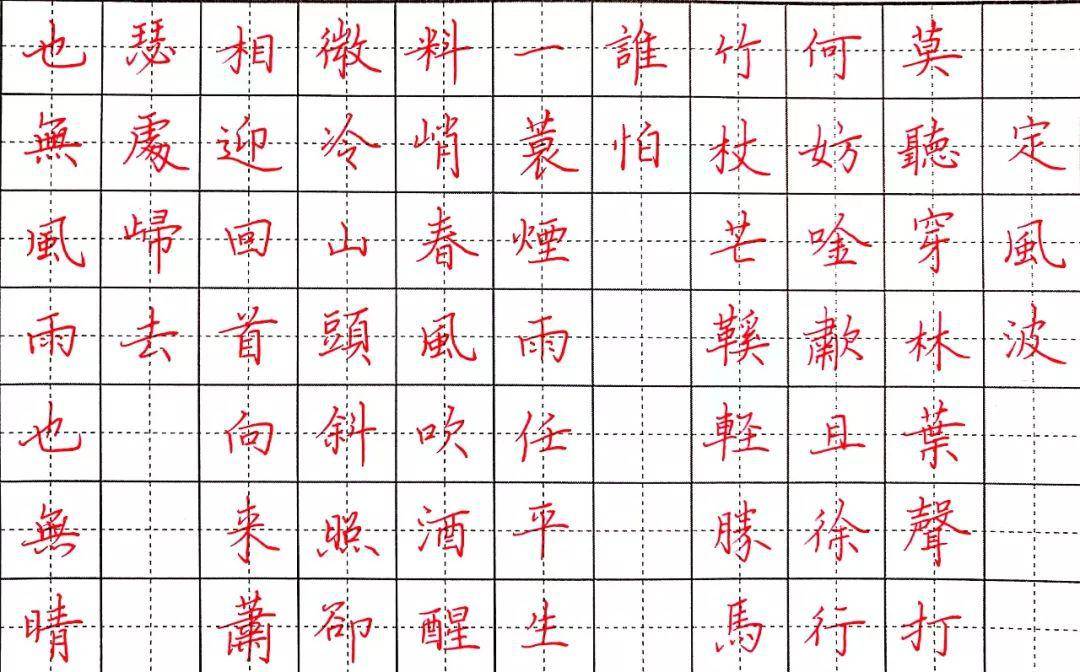 定風波
莫聽穿林葉聲打
何妨唫歗且徐行
竹杖芒鞵輕勝馬
誰怕
一蓑煙雨任平生
料峭春風吹酒醒
微冷山頭斜照卻
相迎回首向来蕭
瑟處歸去
也無風雨也無晴